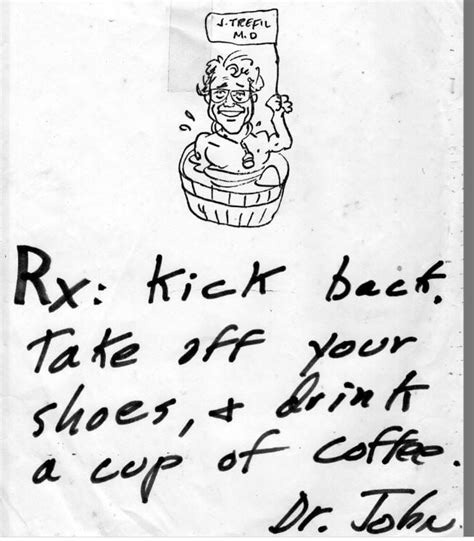 J. TREFIL
M.D
Rx: kick back.
Take off your
shoes, & drink
a cup of coffee.
Dr. John